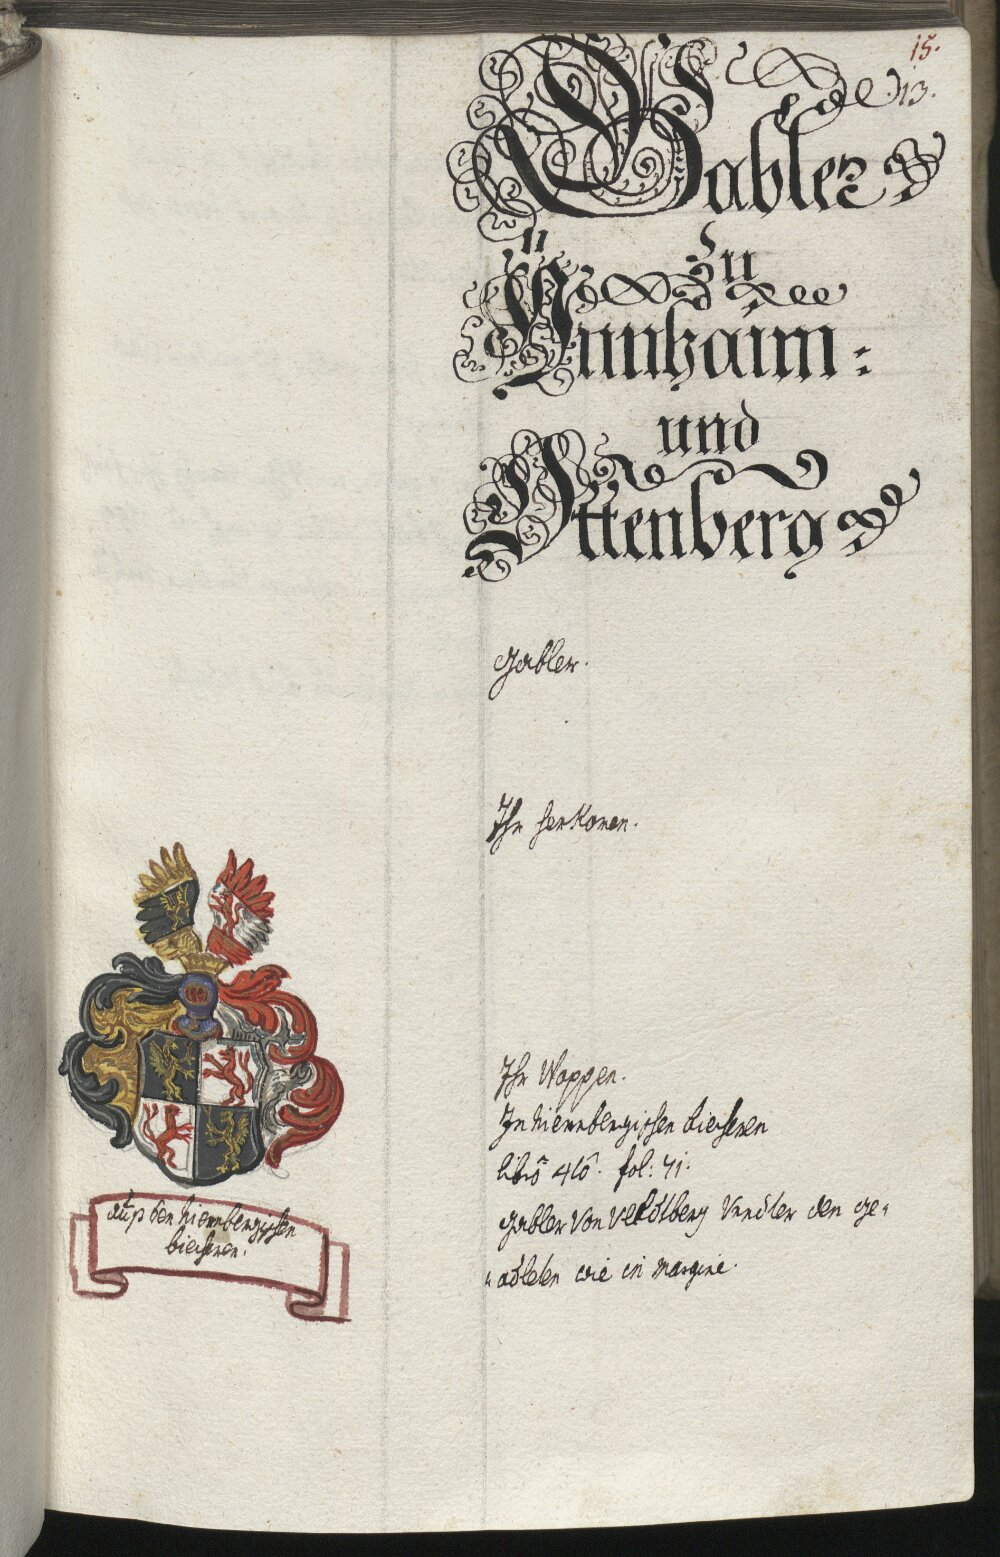 15.
13.
Gabler
zu
Ünnhaim:
und
Ottenberg
Gabler.
Ihr herkomen.
Ihr Wappen.
In Niernbergischen Biecheren
libro 4to. fol: 71.
Gabler Von Veldlberg Vnder den ge=
=adleten wie in margine.
Auß den Niernbergischen
biecheren.